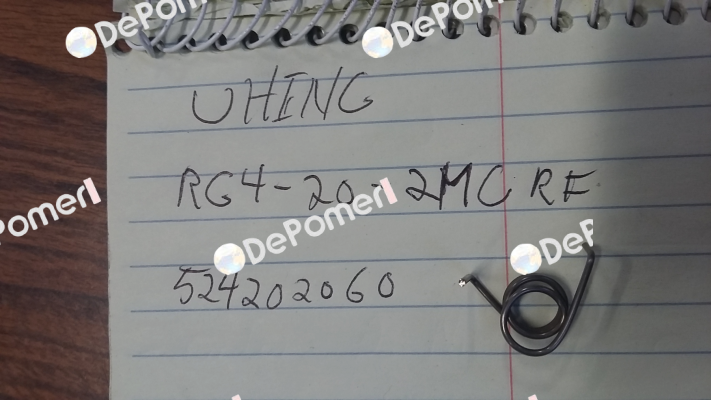 DePomerl
DePomerl
UHING
RG4-20-2MC RF
DePomerl
DePomerl
DeP
524202060